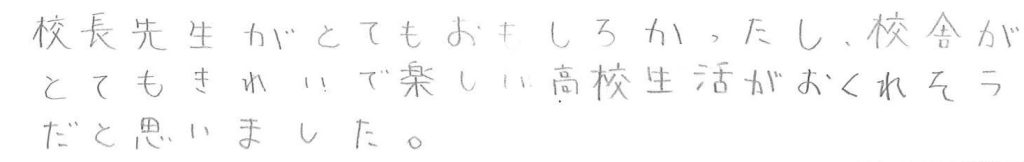 校長先生がとてもおもしろかったし、校舎が
とてもきれいで楽しい高校生活がおくれそう
だと思いました。